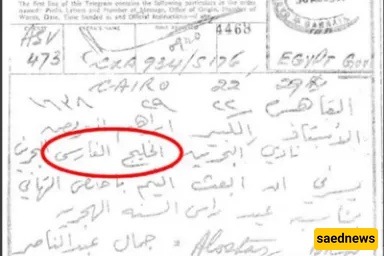 The first line of this Telegram contains the following particulars in the order
named: Prefix Letters and Number of Message, Office of Origin, Number of
Words, Date, Time handed in and Official Instructions—if any.
4468
ASV
473
CXA 934/5176
EGYPT GOV
CAIRO 22 29
القاهرة ٢٢ ٢٩ ١٦٣٨
الأستاذ الكبير
نادي البحرين الخليج الفارسي البحرين
يسرني ان ابعث اليكم باخلص التهاني
بمناسبة عيد راس السنة الهجرية
جمال عبدالناصر
saednews